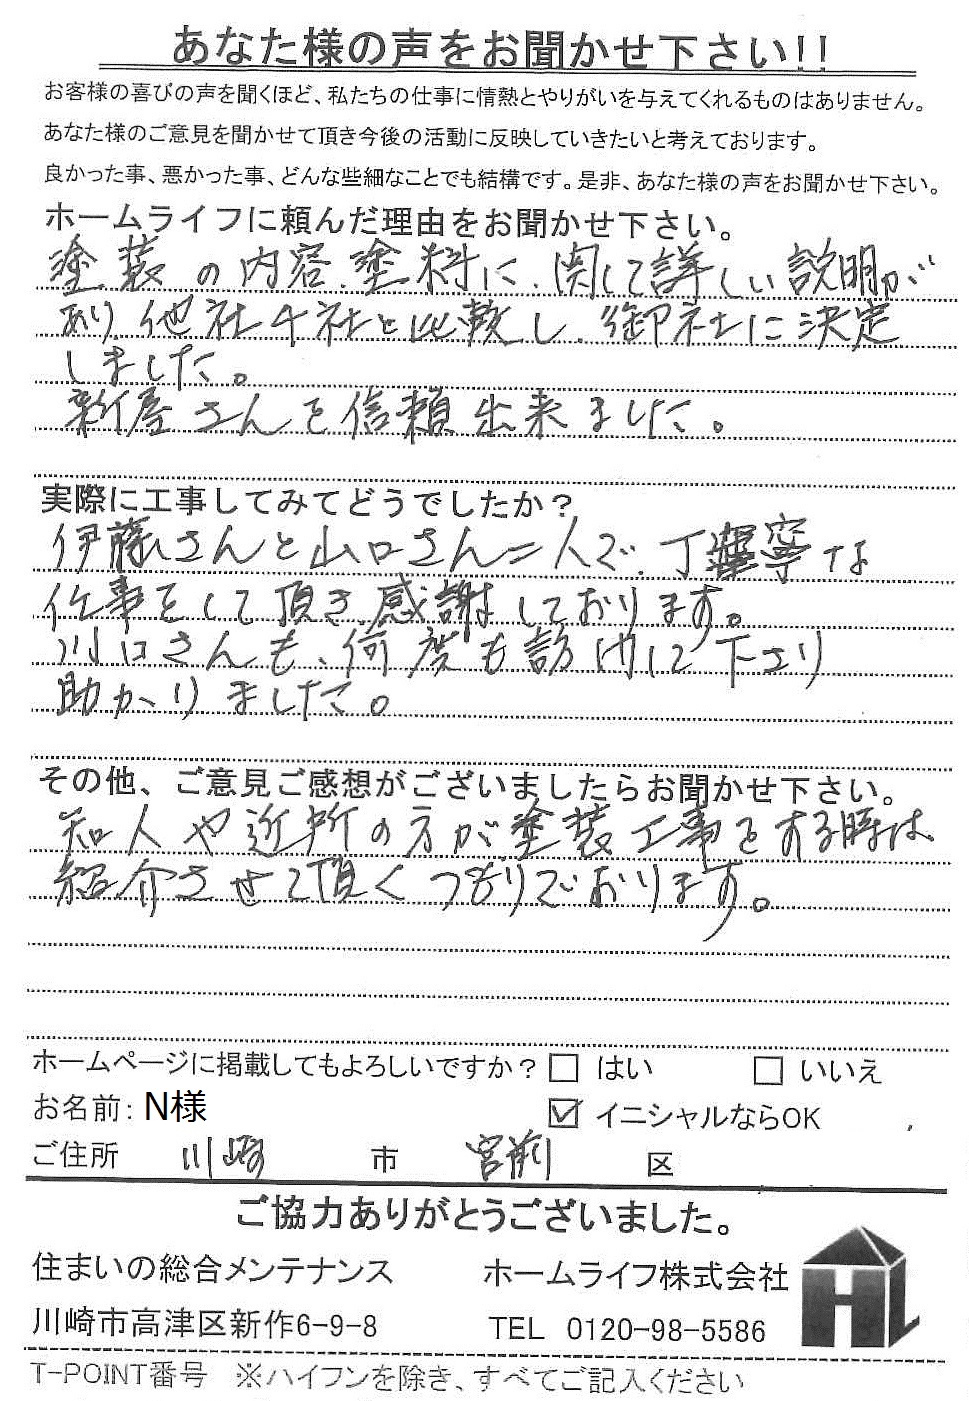 あなた様の声をお聞かせ下さい!!
お客様の喜びの声を聞くほど、私たちの仕事に情熱とやりがいを与えてくれるものはありません。
あなた様のご意見を聞かせて頂き今後の活動に反映していきたいと考えております。
良かった事、悪かった事、どんな些細なことでも結構です。是非、あなた様の声をお聞かせ下さい。
ホームライフに頼んだ理由をお聞かせ下さい。
塗装の内容、塗料に、関して詳しい説明が
あり、他社4社と比較し、御社に決定
しました。
新屋さんを信頼出来ました。
実際に工事してみてどうでしたか?
伊藤さんと山口さん二人で、丁寧な
仕事をして頂き、感謝しております。
川口さんも、何度も訪問して下さり
助かりました。
その他、ご意見ご感想がございましたらお聞かせ下さい。
知人や近所の方が塗装工事をする時は
紹介させて頂くつもりでおります。
ホームページに掲載してもよろしいですか? □ はい □ いいえ
お名前: N様 ☑ イニシャルならOK
ご住所 川崎 市 宮前 区
ご協力ありがとうございました。
住まいの総合メンテナンス ホームライフ株式会社
川崎市高津区新作6-9-8 TEL 0120-98-5586
HL
T-POINT番号 ※ハイフンを除き、すべてご記入ください